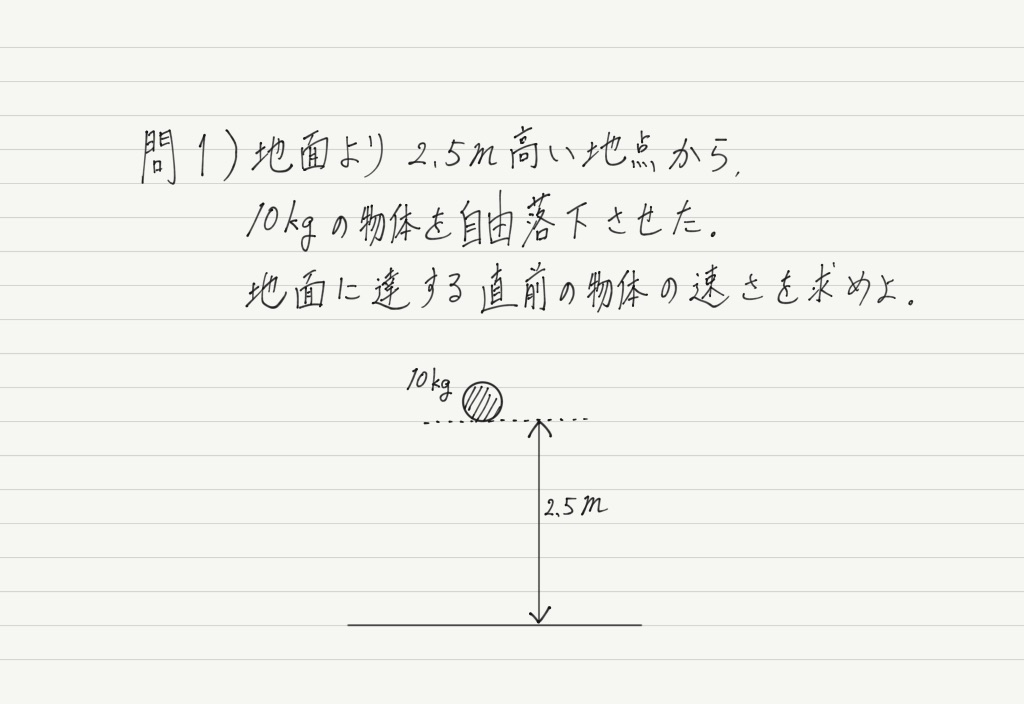 問1)地面より2.5m高い地点から,
10kgの物体を自由落下させた.
地面に達する直前の物体の速さを求めよ.
10kg
2.5m